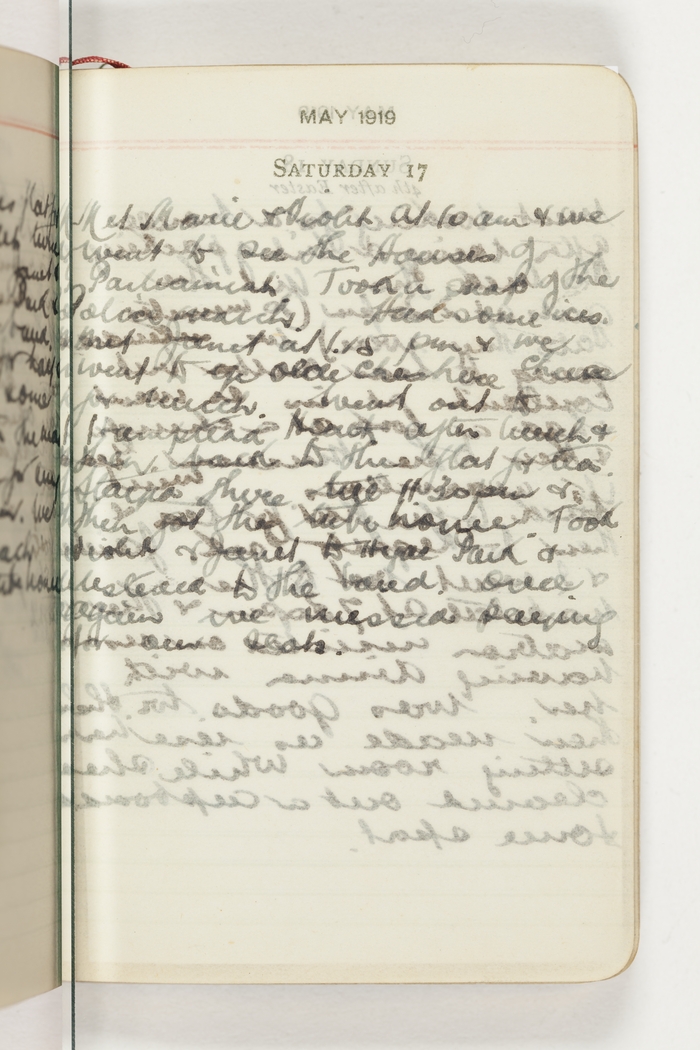 MAY 1919
SATURDAY 17
Met Marie & Violet at 10 am & we
went to see the Houses of
Parliament. Took a snap of the
Police
Had some ices.
met Janet at 1.15 pm & we
went to ye olde Cheshire
for lunch. went out to
Hampstead Heath after lunch &
back to their flat for tea.
Stayed there till 11.30 pm &
then got the tube home Took
Violet & Janet to Hyde Park &
listened to the band. once
again we missed paying
for our seats.